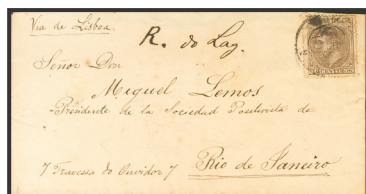 Via de Lisboa.
R. do Lag.
Señor Don
Miguel Lemos
Presidente de la Sociedad Positivista de
7 Travessa do Ouvidor 7
Rio de Janeiro